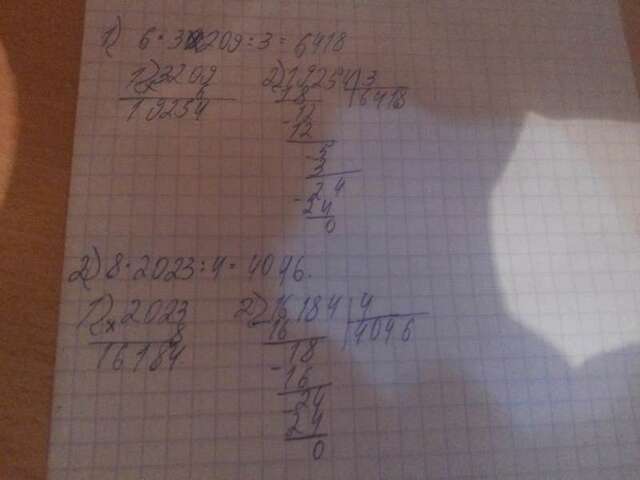 1) 6 · 3209 : 3 = 6418
1) × 3209
6
19254
2) 19254 | 3
18 | 6418
- 12
12
- 5
3
- 24
24
0
2) 8 · 2023 : 4 = 4046.
1) × 2023
8
16184
2) - 16184 | 4
16 | 4046
18
- 16
- 24
24
0